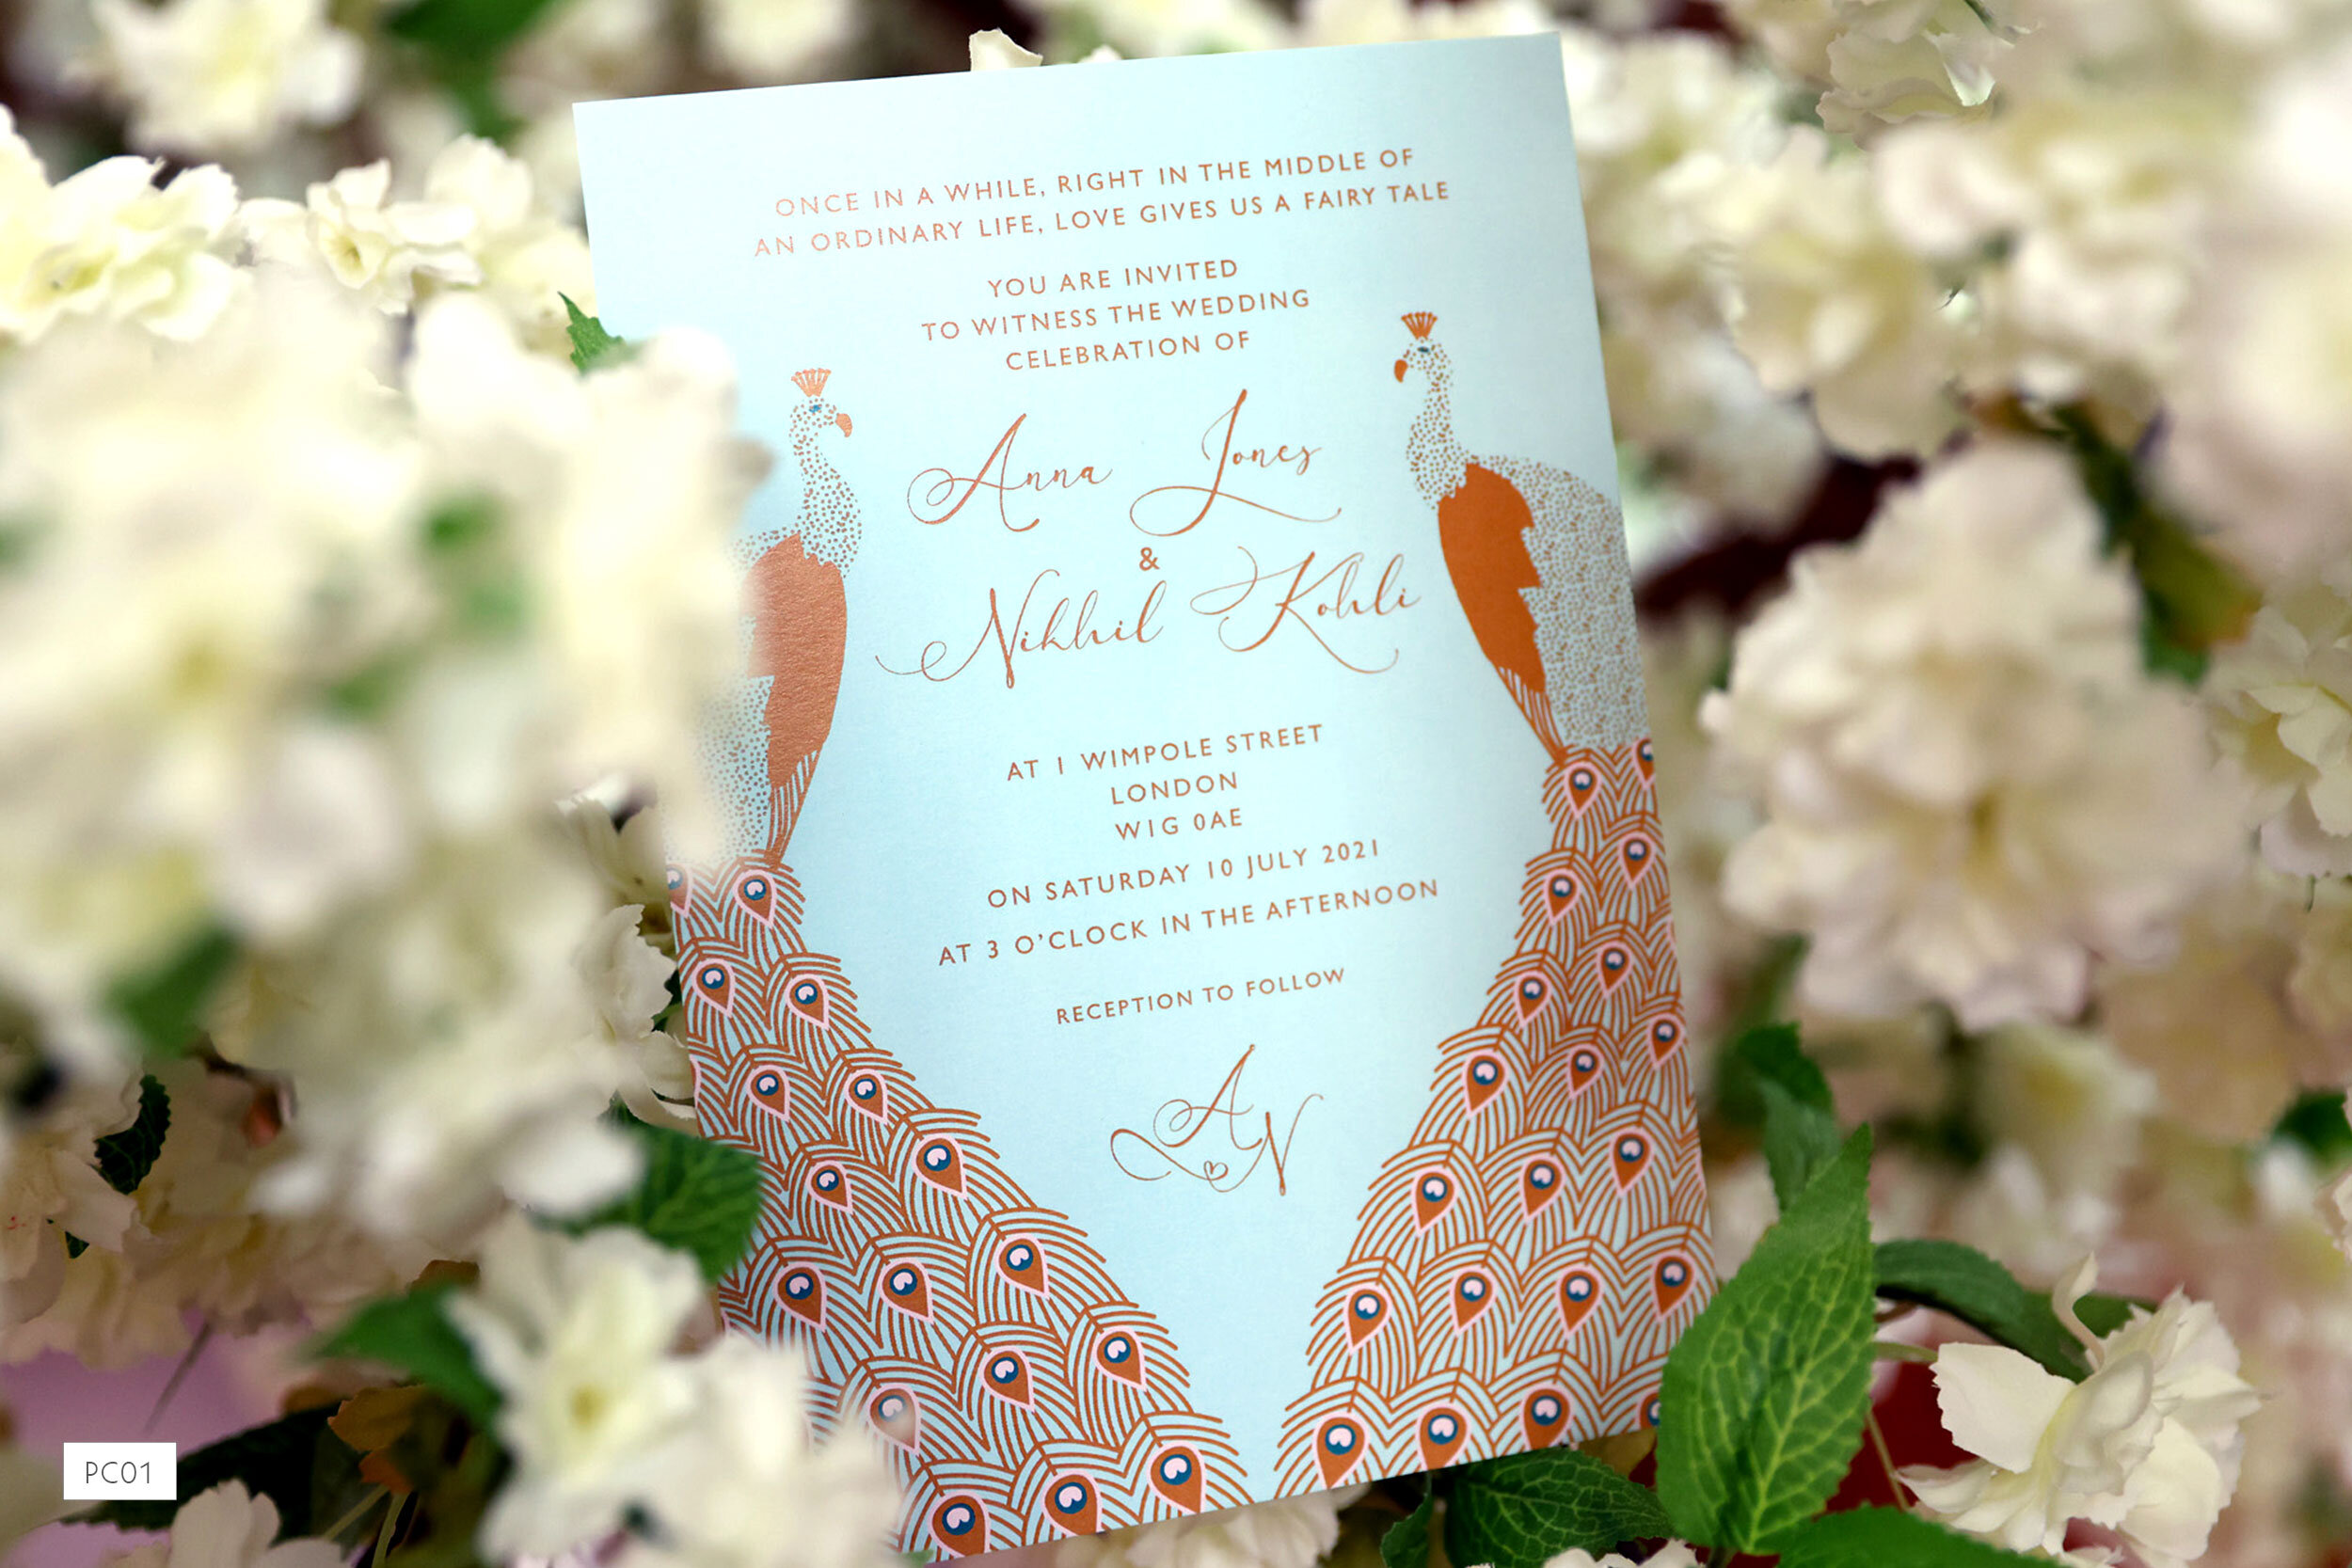 ONCE IN A WHILE, RIGHT IN THE MIDDLE OF
AN ORDINARY LIFE, LOVE GIVES US A FAIRY TALE
YOU ARE INVITED
TO WITNESS THE WEDDING
CELEBRATION OF
Anna Jones
&
Nikhil Kohli
AT 1 WIMPOLE STREET
LONDON
W1G 0AE
ON SATURDAY 10 JULY 2021
AT 3 O'CLOCK IN THE AFTERNOON
RECEPTION TO FOLLOW
A
N
PC01